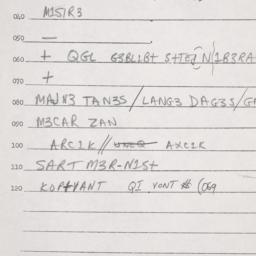 040 M1S1R3
050 —
060 + QGL G3BL1B+ S+TE
070 +
080 MAJN3 TAN3S / LANG3 DAG3S /
090 M3CAR ZAN
100 ARC1K // AXC1K
110 SART M3R-N1S+
120 KOP+YANT QI VONT (069